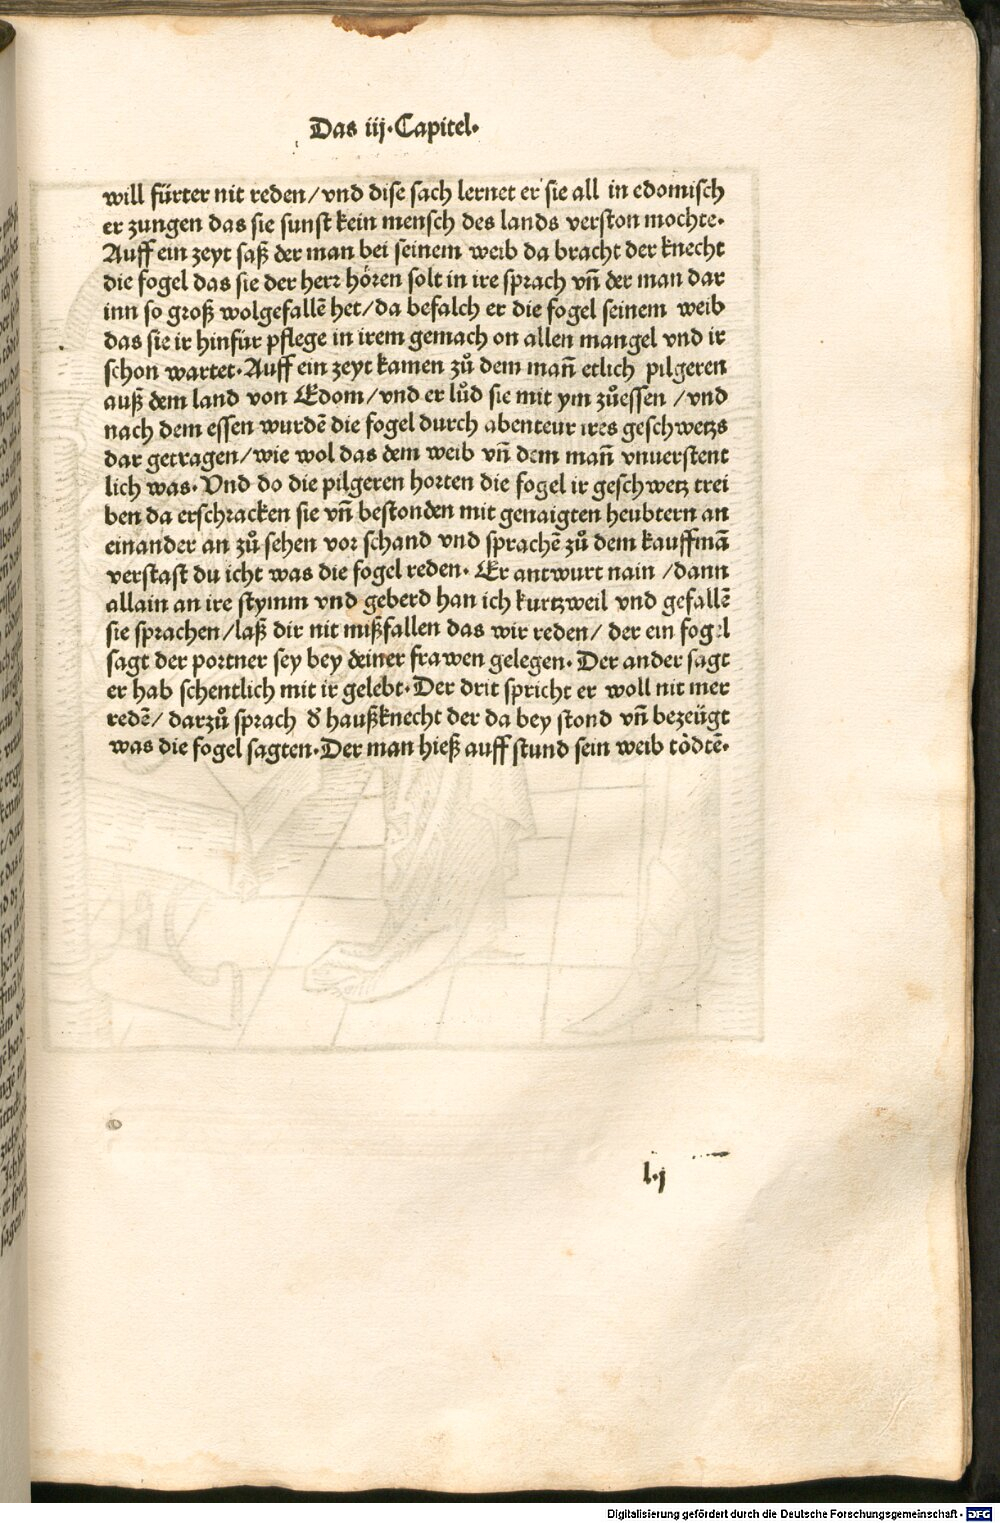 Das iij·Capitel·
will fürter nit reden/vnd dise sach lernet er sie all in edomisch
er zungen das sie sunst kein mensch des lands verston mochte·
Auff ein zeyt saß der man bei seinem weib da bracht der knecht
die fogel das sie der herr hören solt in ire sprach vñ der man dar
inn so groß wolgefallē het/da befalch er die fogel seinem weib
das sie ir hinfür pflege in irem gemach on allen mangel vnd ir
schon wartet·Auff ein zeyt kamen zuͦ dem mañ etlich pilgeren
auß dem land von Edom/vnd er luͦd sie mit ym zuͦessen /vnd
nach dem essen wurdē die fogel durch abenteur ires geschwetzs
dar getragen/wie wol das dem weib vñ dem mañ vnuerstent
lich was· Vnd do die pilgeren horten die fogel ir geschwetz trei
ben da erschracken sie vñ bestonden mit genaigten heubtern an
einander an zuͦ sehen vor schand vnd sprachē zuͦ dem kauffmā
verstast du icht was die fogel reden· Er antwurt nain /dann
allain an ire stymm vnd geberd han ich kurtzweil vnd gefallē
sie sprachen/laß dir nit mißfallen das wir reden/ der ein fogel
sagt der portner sey bey deiner frawen gelegen· Der ander sagt
er hab schentlich mit ir gelebt·Der drit spricht er woll nit mer
redē/ darzuͦ sprach d̕ haußknecht der da bey stond vñ bezeügt
was die fogel sagten·Der man hieß auff stund sein weib tödtē·
l·j
Digitalisierung gefördert durch die Deutsche Forschungsgemeinschaft - DFG